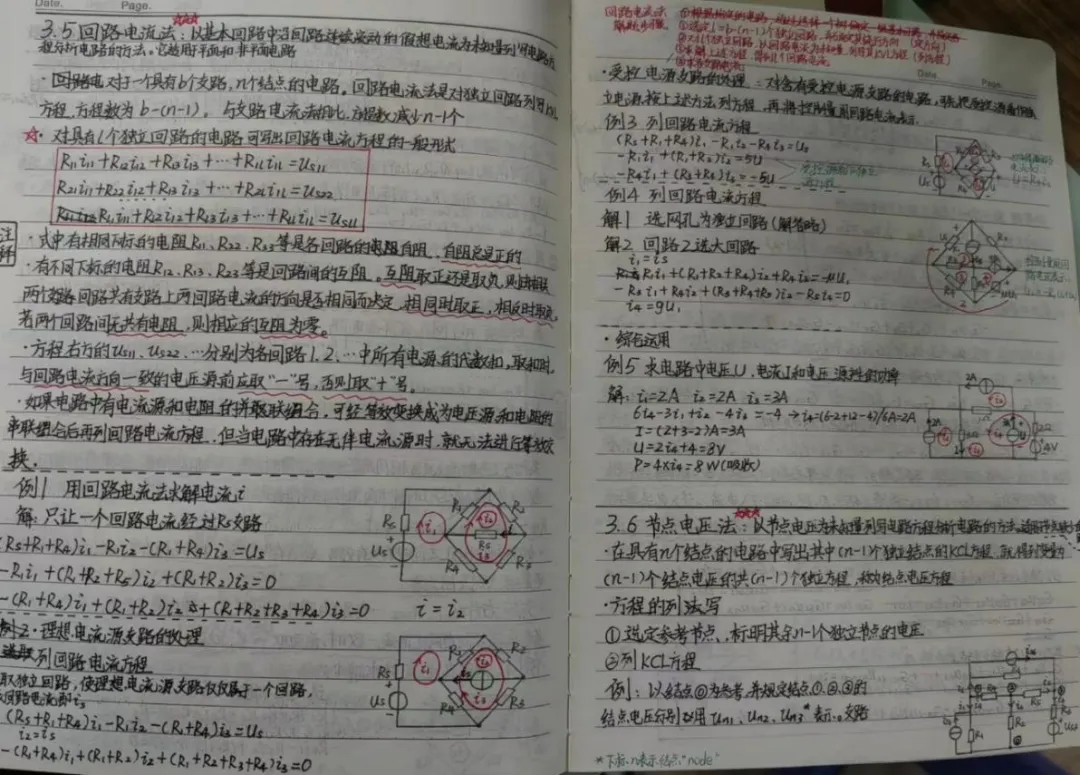 Date. Page.
3.5 回路电流法:以基本回路中沿回路连续流动的假想电流为未知量列写电路方
程分析电路的方法。它适用于平面和非平面电路
·对于一个具有b个支路,n个结点的电路。回路电流法是对独立回路列写KVL
方程,方程数为b-(n-1)。与支路电流法相比,方程数减少n-1个
☆·对具有l个独立回路的电路可写出回路电流方程的一般形式
R11i11+R12i12+R13i13+…+R1lil=US11
R21i11+R22i12+R23i13+…+R2lil=US22
Rl1i11+Rl2i12+Rl3i13+…+Rllill=USll
注释
·式中有相同下标的电阻R11、R22、R33等是各回路的自阻,自阻总是正的
·有不同下标的电阻R12、R13、R23等是回路间的互阻,互阻取正还是取负,则由相关
两个回路共有支路上两回路电流的方向是否相同而决定,相同时取正,相反时取负,
若两个回路间无共有电阻,则相应的互阻为零。
·方程右方的US11、US22、…分别为各回路1、2、…中所有电源的代数和,取和时,
与回路电流方向一致的电压源前应取"-"号,否则取"+"号。
·如果电路中有电流源和电阻的并联组合,可经等效变换成为电压源和电阻的
串联组合后再列回路电流方程,但当电路中存在无伴电流源时,就无法进行等效变
换.
例1 用回路电流法求解电流i
解:只让一个回路电流经过R5支路
(RS+R1+R4)i1-R1i2-(R1+R4)i3=US
-R1i1+(R1+R2+R5)i2+(R1+R2)i3=0
-(R1+R4)i1+(R1+R2)i2+(R1+R2+R3+R4)i3=0 i=i2
例2·理想电流源支路的处理
列回路电流方程
取独立回路,使理想电流源支路仅仅属于一个回路,
(RS+R1+R4)i1-R1i2-(R1+R4)i3=US
i2=iS
-(R1+R4)i1+(R1+R2)i2+(R1+R2+R3+R4)i3=0
回路电流法
解题步骤:
Date. Page.
·受控电源支路的处理:对含有受控电源支路的电路,可先把受控源看作独
立电源按上述方法列方程,再将控制量用回路电流表示.
例3 列回路电流方程
(RS+R1+R4)i1-R1i2-R4i3=US
-R1i1+(R1+R2)i2=5U
-R4i1+(R3+R4)i3=-5U
例4 列回路电流方程
解1 选网孔为独立回路(解答略)
解2 回路2选大回路
i1=iS
R1i1+(R1+R2+R4)i2+R4i3=-μU1
-R3i1+R4i2+(R3+R4+R5)i3-R5i4=0
i4=gU1
·综合运用
例5 求电路中电压U,电流I和电压源产生的功率
解:i1=2A i2=2A i3=3A
6i4-3i1+i2-4i3=-4→i4=(6-2+12-4)/6A=2A
I=(2+3-2)A=3A
U=2i4+4=8V
P=4×i4=8W(吸收)
3.6 节点电压法:以节点电压为未知量列写电路方程分析电路的方法.
·在具有n个结点的电路中写出其中(n-1)个独立结点的KCL方程,就得到变量为
(n-1)个结点电压的共(n-1)个独立方程,称为结点电压方程
·方程的列法写
①选定参考节点、标明其余n-1个独立节点的电压
②列KCL方程
例:以结点⓪为参考,并规定结点①、②、③的
结点电压分别用un1、un2、un3*表示.支路
*下标n表示结点"node"